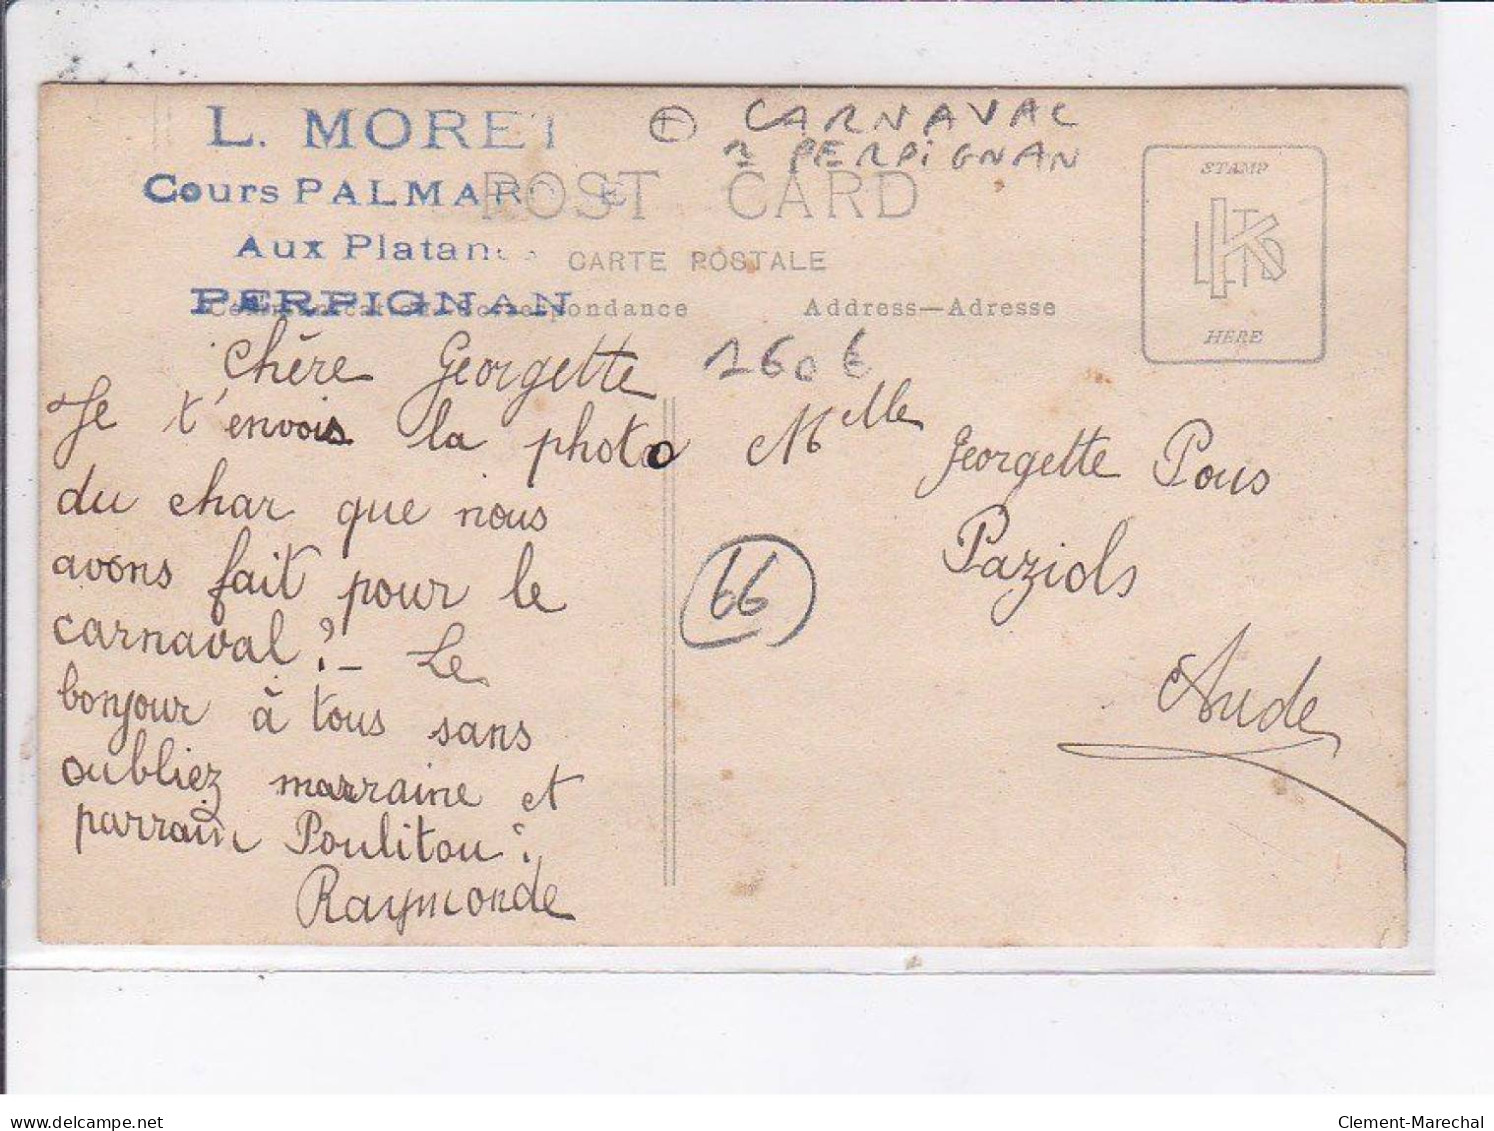 L. MORET
Cours PALMAR
Aux Platan
PERPIGNAN
CARNAVAL
PERPIGNAN
POST CARD
CARTE POSTALE
Correspondance
Address—Adresse
STAMP
HERE
160 €
66
Chère Georgette
Je t'envois la photo
du char que nous
avons fait pour le
carnaval? - Le
bonjour à tous sans
oubliez marraine et
parrain Poulitou.
Raymonde
Melle Georgette Pous
Paziols
Aude
delcampe.net
Clement-Marechal